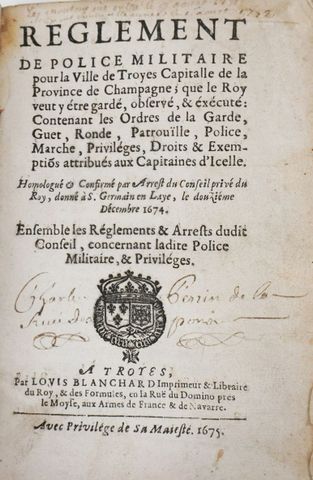 REGLEMENT
DE POLICE MILITAIRE
pour la Ville de Troyes Capitalle de la
Province de Champagne; que le Roy
veut y étre gardé, observé, & éxécuté:
Contenant les Ordres de la Garde,
Guet, Ronde, Patroüille, Police,
Marche, Priviléges, Droits & Exem-
ptiõs attribués aux Capitaines d'Icelle.
Homologué & Confirmé par Arrest du Conseil privé du
Roy, donné à S. Germain en Laye, le douziéme
Décembre 1674.
Ensemble les Réglements & Arrests dudit
Conseil, concernant ladite Police
Militaire, & Priviléges.
Charles Perrin de la
A TROYES,
Par LOVIS BLANCHARD Imprimeur & Libraire
du Roy, & des Formules, en la Ruë du Domino pres
le Moyse, aux Armes de France & de Navarre.
Avec Privilége de Sa Majesté. 1675.